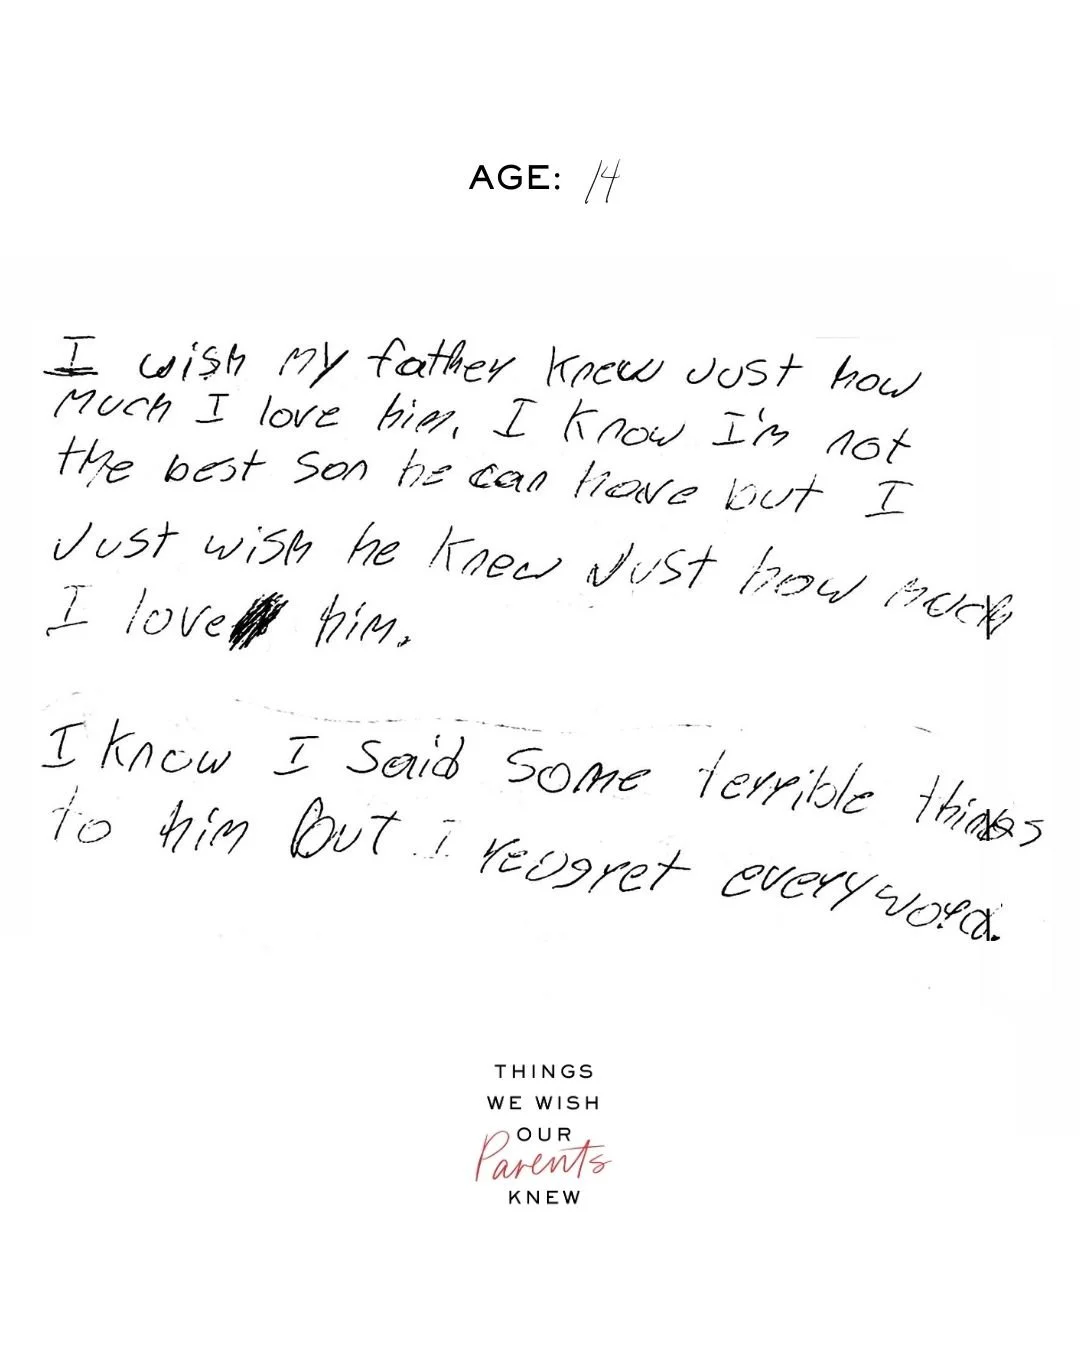 AGE: 14
I wish my father knew Just how
much I love him. I know I'm not
the best son he can have but I
Just wish he knew Just how much
I love him.
I know I said some terrible things
to him But I reugret every word.
THINGS
WE WISH
OUR
Parents
KNEW